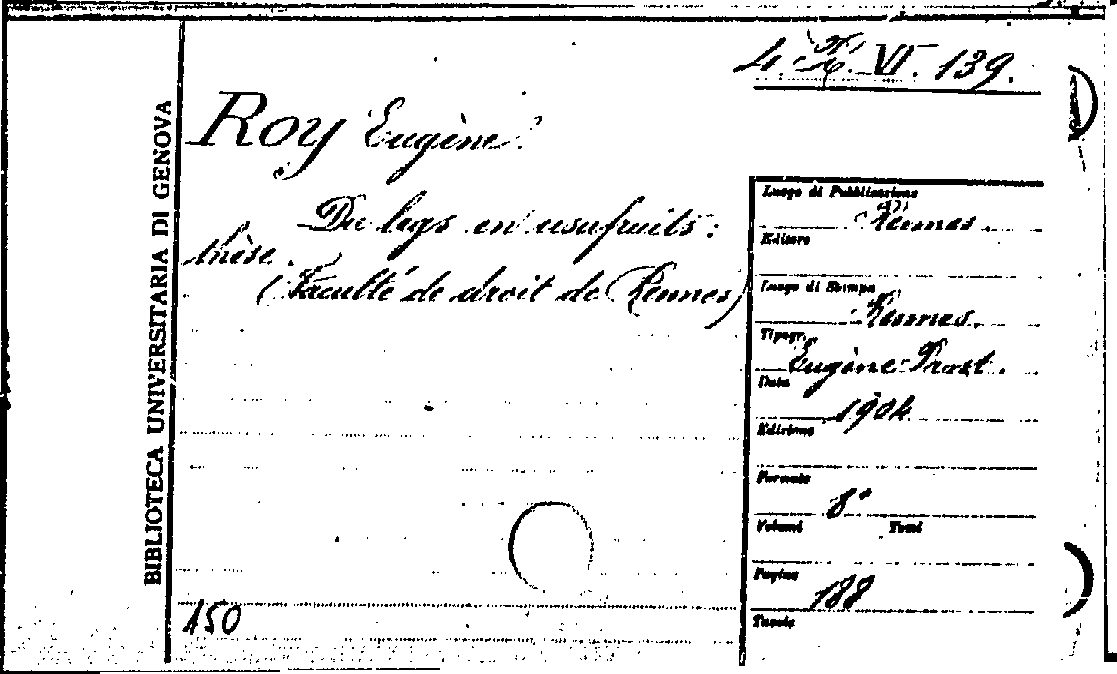 4. X. VI. 139.
BIBLIOTECA UNIVERSITARIA DI GENOVA
Roy Eugène.
Du legs en usufruits:
thèse.
(Faculté de droit de Rennes)
150
Luogo di Pubblicazione
Rennes
Editore
Luogo di Stampa
Rennes
Tipogr.
Eugène Prost.
Data
1904
Edizione
Formato
8°
Volumi Tomi
Pagine
188
Tavole